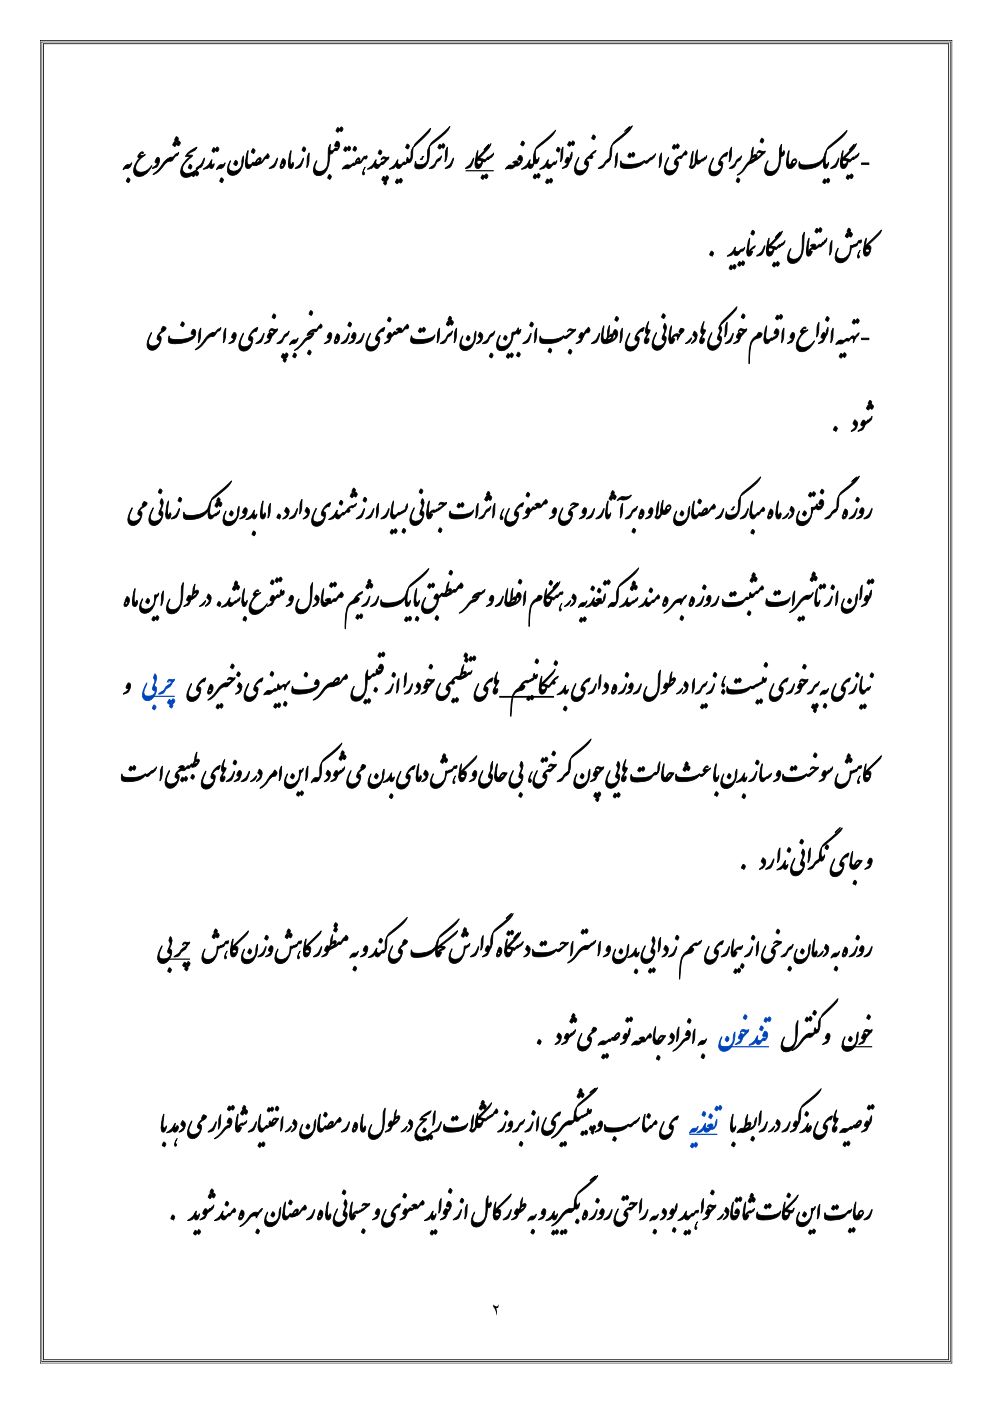 -سیگار یک عامل خطر برای سلامتی است اگر نمی توانید یکدفعه سیگار را ترک کنید چند هفته قبل از ماه رمضان به تدریج شروع به
کاهش استعمال سیگار نمایید .
-تهیه انواع و اقسام خوراکی ها در مهمانی های افطار موجب از بین بردن اثرات معنوی روزه و منجر به پرخوری و اسراف می
شود .
روزه گرفتن در ماه مبارک رمضان علاوه بر آثار روحی و معنوی، اثرات جسمانی بسیار ارزشمندی دارد. اما بدون شک زمانی می
توان از تاثیرات مثبت روزه بهره مند شد که تغذیه در هنگام افطار و سحر مطبق با یک رژیم متعادل و متنوع باشد. در طول این ماه
نیازی به پرخوری نیست؛ زیرا در طول روزه داری بدن مکانیسم های تنظیمی خود را از قبیل مصرف بهینه ی ذخیره ی چربی و
کاهش سوخت و ساز بدن باعث حالت هایی چون کرختی، بی حالی و کاهش دمای بدن می شود که این امر در روزهای طبیعی است
و جای نگرانی ندارد .
روزه به درمان برخی از بیماری سم زدایی بدن و استراحت دستگاه گوارش کمک می کند و به منظور کاهش وزن کاهش چربی
خون و کنترل قند خون به افراد جامعه توصیه می شود .
توصیه های مذکور در رابطه با تغذیه ی مناسب و پیشگیری از بروز مشکلات رایج در طول ماه رمضان در اختیار شما قرار می دهد با
رعایت این نکات شما قادر خواهید بود به راحتی روزه بگیرید و به طور کامل از فواید معنوی و جسمانی ماه رمضان بهره مند شوید .
۲